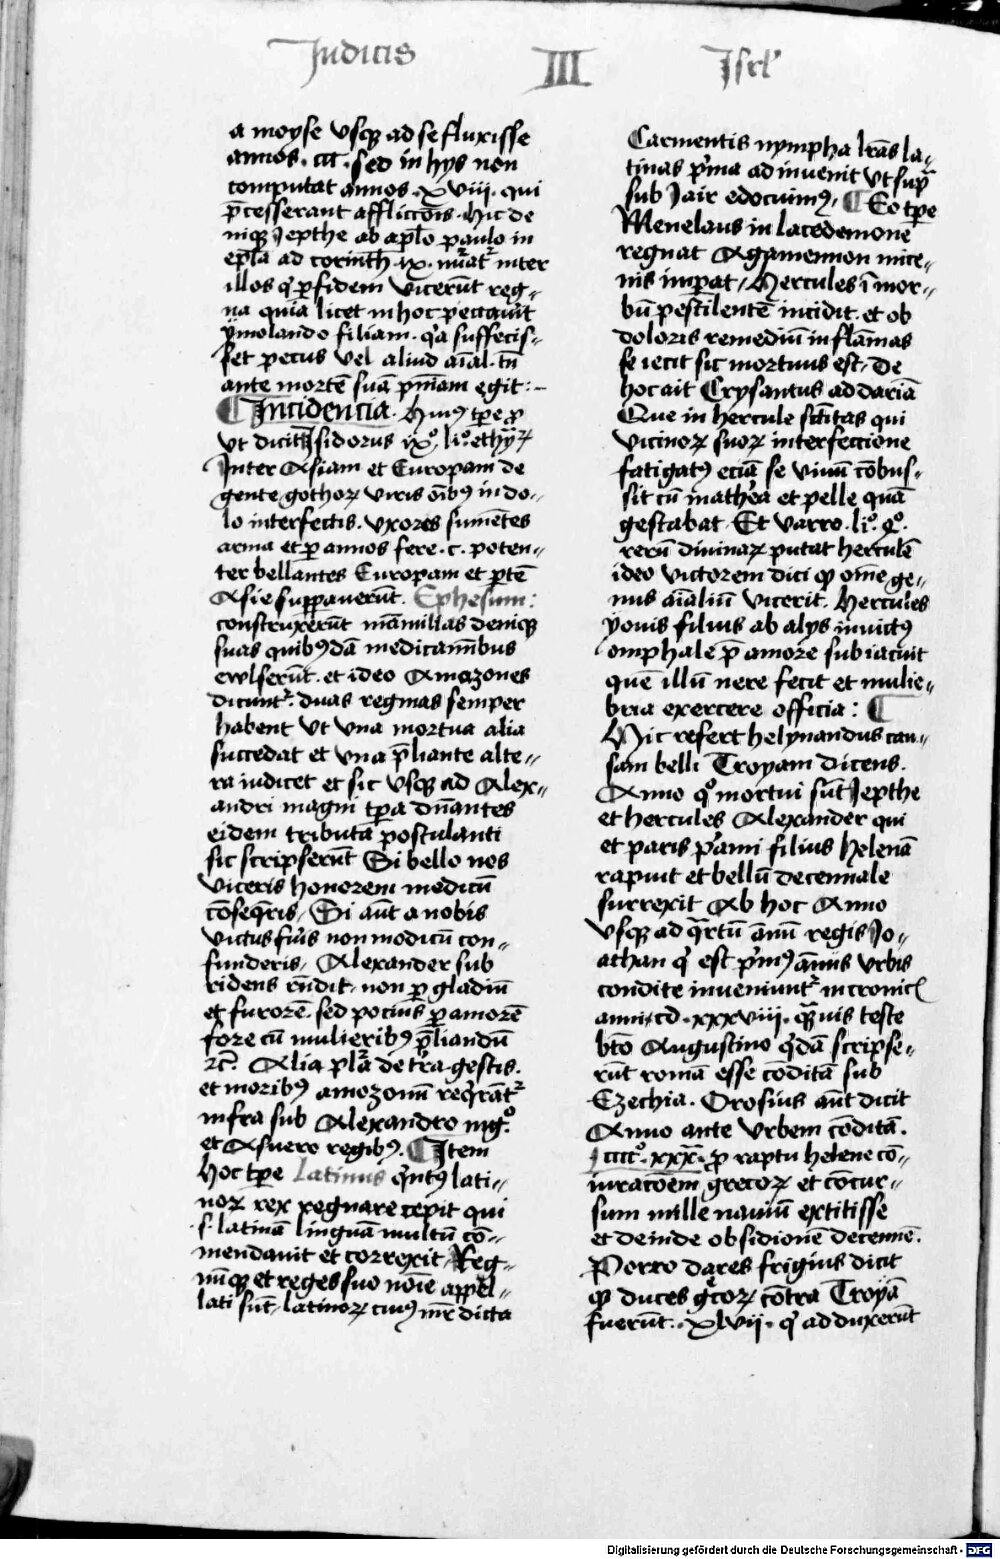 Judicis III Isrl'
a moyse vsqȝ ad se fluxisse
annos . ccc . sed in hys non
computat annos . xviii . qui
p̄cesserant afflicc̄ois . hic de
niqȝ Jepthe ab ap̄lo paulo in
ep̄la ad corinth . ix . nūat᷑ inter
illos q' p fidem vicerūt reg-
na quia licet in hoc peccauit
ymolando filiam . q'a suffecis-
set pecus vel aliud aīal . tn̄
ante mortē suā pn̄iam egit :-
Incidencia . Huiꝰ tp̄e
vt dicit Isidorus ix° li° ethy
Inter Asiam et Europam de
gente gothoꝝ viris oībꝰ in do-
lo interfectis . vxores sumētes
arma et p annos fere . c . poten-
ter bellantes Europam et ptē
Asie suppauerūt . Ephesum :
construxerūt māmillas deniqȝ
suas quibꝰdā medicamībus
ewlserūt . et ideo Amazones
dicunt᷑ . duas reginas semper
habent vt vna mortua alia
succedat et vna p̄liante alte-
ra iudicet et sic vsqȝ ad Alex-
andri magni tp̄a dn̄antes
eidem tributa postulanti
sic scripserūt Si bello nos
viceris honorem medicū
cōseqris , Si aūt a nobis
victus fūis non modicū con-
funderis , Alexander sub
ridens rn̄dit . non p gladiū
et furorē . sed pocius p amorē
fore cū mulieribꝰ p̄liandū
⁊c̄ . Alia pl'a de tra gestis .
et moribꝰ amozonū reqrāt᷑
infra sub Alexandro mg°.
et Asuero regibꝰ . Item
hoc tp̄e Latinus q'ntꝰ lati-
noꝝ rex regnare cepit qui
.s. latinā linguā multū cō-
mendauit et correxit . Reg-
nūqȝ et reges suo noīe appel-
lati sūt . latinoꝝ cuiꝰ mr̄ dicta
Carmentis nympha lrās la-
tinas p'ma ad inuenit vt sup᷑
sub Jair edocuimꝰ . Eo tp̄e
Menelaus in lacedemone
regnat Agamemnon mice-
nis impat / Hercules ī mor-
bū pestilentē incidit . et ob
doloris remediū in flāmas
se iecit sic mortuus est . De
hoc ait Crysantus ad dariā
Que in hercule sc̄titas qui
vicinoꝝ suoꝝ interfectione
fatigatꝰ eciā se viuū cōbus-
sit cū et pelle quā
gestabat . Et varro . li°.
rerū diuinaꝝ putat herculē
ideo victorem dici qȝ ōme ge-
nus aīaliū vicerit . Hercules
youis filius ab alys inuictꝰ
omphale p̄ amore subiacuit
quē illū nere fecit et mulie-
bria exercere officia :
Hic refert helynandus cau-
sam belli Troyam dicens .
Anno q° mortui sūt Jepthe
et hercules Alexander qui
et paris p'ami filius helenā
rapuit et bellū decennale
surrexit Ab hoc Anno
vsqȝ ad q'rtū ānū regis Jo-
athan q' est p'mꝰ ānus vrbis
condite inueniunt᷑ in cronic'
anni . cd . xxxviii . q'muis teste
bt̄o Augustino q'dā scripse-
rūt romā esse cōditā sub
Ezechia . Orosius aūt dicit
Anno ante vrbem cōditā .
. cccc . xxx . p raptu helene cō-
iurac̄oem grecoꝝ et cōcur-
sum mille nauiū extitisse
et deinde obsidionē decennē .
Porro dares frigius dicit
qȝ duces gcoꝝ cōtra Troyā
fuerūt . xlvii . q' adduxerūt
Digitalisierung gefördert durch die Deutsche Forschungsgemeinschaft - DFG